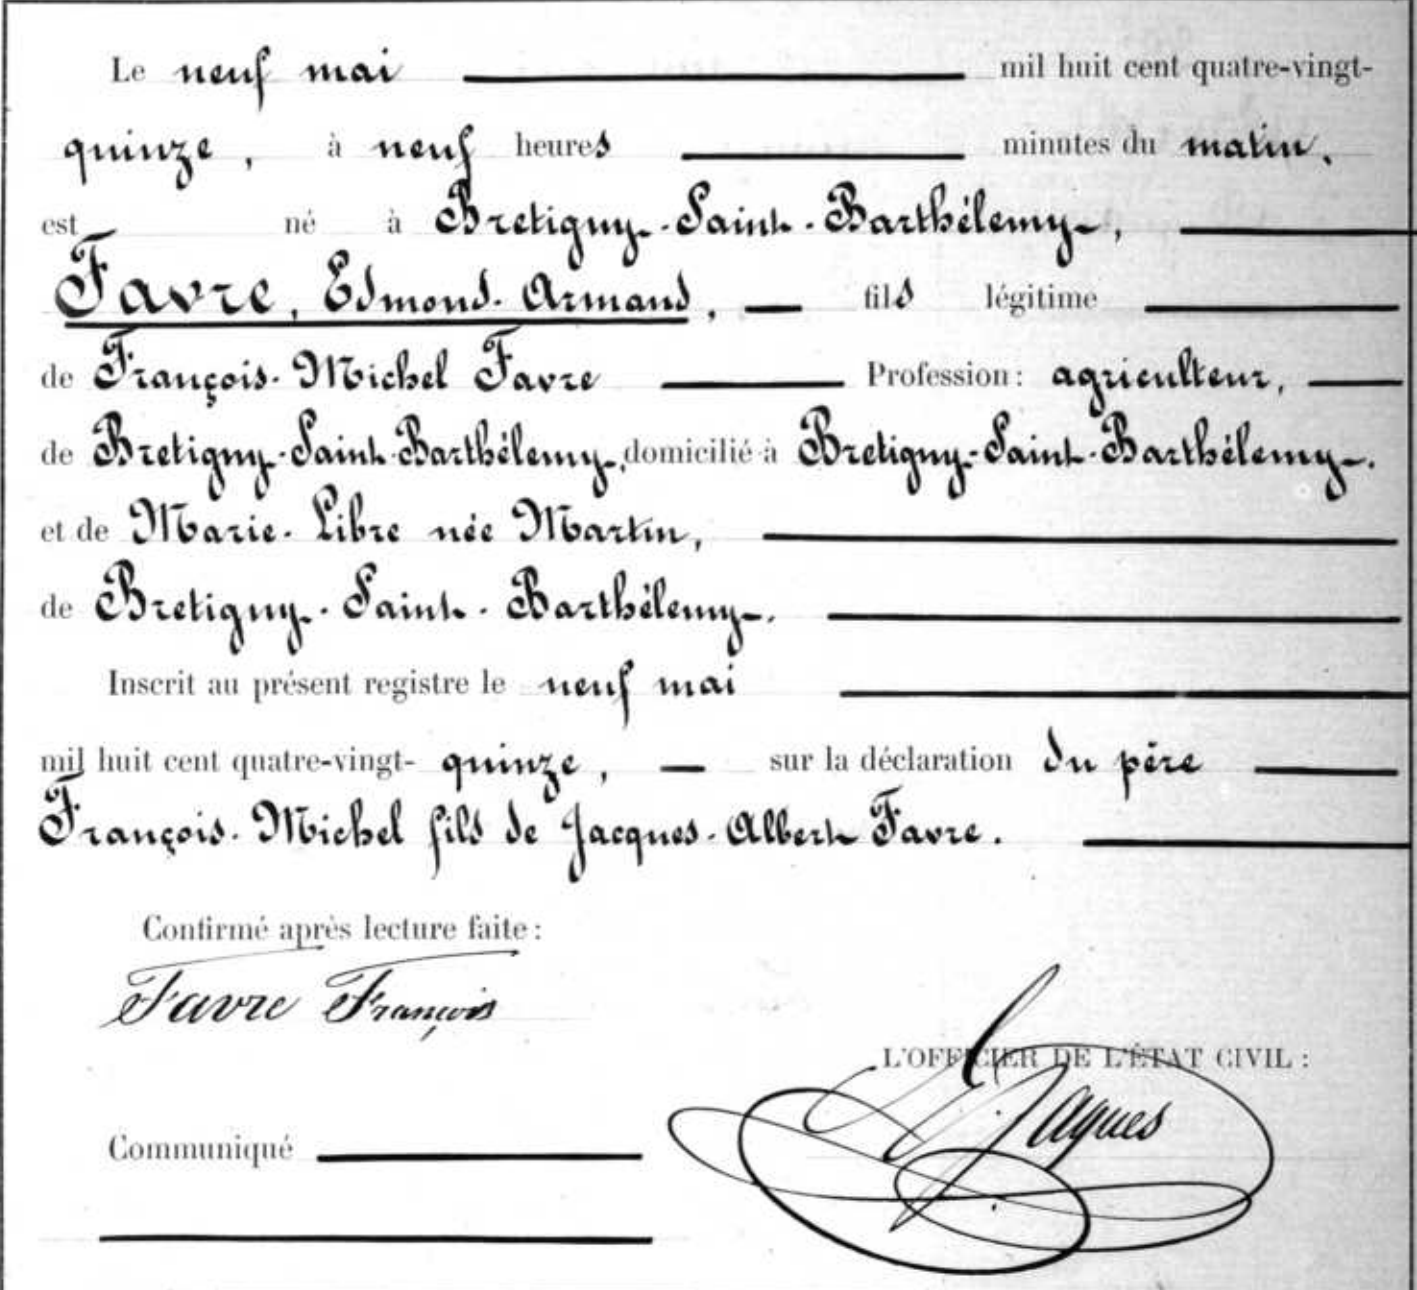 Le neuf mai mil huit cent quatre-vingt-
quinze, à neuf heures minutes du matin,
est né à Bretigny-Saint-Barthélemy,
Favre, Edmond-Armand, fils légitime
de François-Michel Favre Profession: agriculteur,
de Bretigny-Saint-Barthélemy, domicilié à Bretigny-Saint-Barthélemy.
et de Marie-Libre née Martin,
de Bretigny-Saint-Barthélemy.
Inscrit au présent registre le neuf mai
mil huit cent quatre-vingt- quinze, sur la déclaration du père
François-Michel fils de Jacques-Albert Favre.
Confirmé après lecture faite:
Favre François
L'OFFICIER DE L'ÉTAT CIVIL:
Jaques
Communiqué